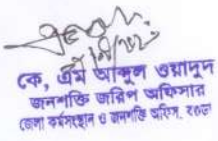 কে, এম আব্দুল ওয়াদুদ
জনশক্তি জরিপ অফিসার
জেলা কর্মসংস্থান ও জনশক্তি অফিস, বগুড়া